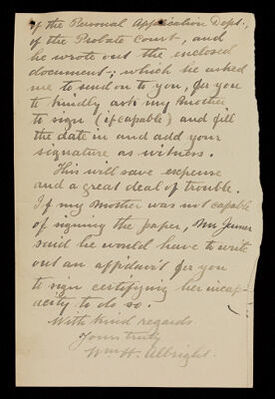 of the Personal Application Dept.,
of the Probate Court, and
he wrote out the enclosed
document, which he asked
me to send on to you, for you
to kindly ask my Mother
to sign (if capable) and fill
the date in and add your
signature as witness.
This will save expense
and a great deal of trouble.
If my Mother was not capable
of signing the paper, Mr
said he would have to write
out an affidavit for you
to sign certifying her incap-
acity to do so.
With kind regards
Yours truly
Wm H. Albright.